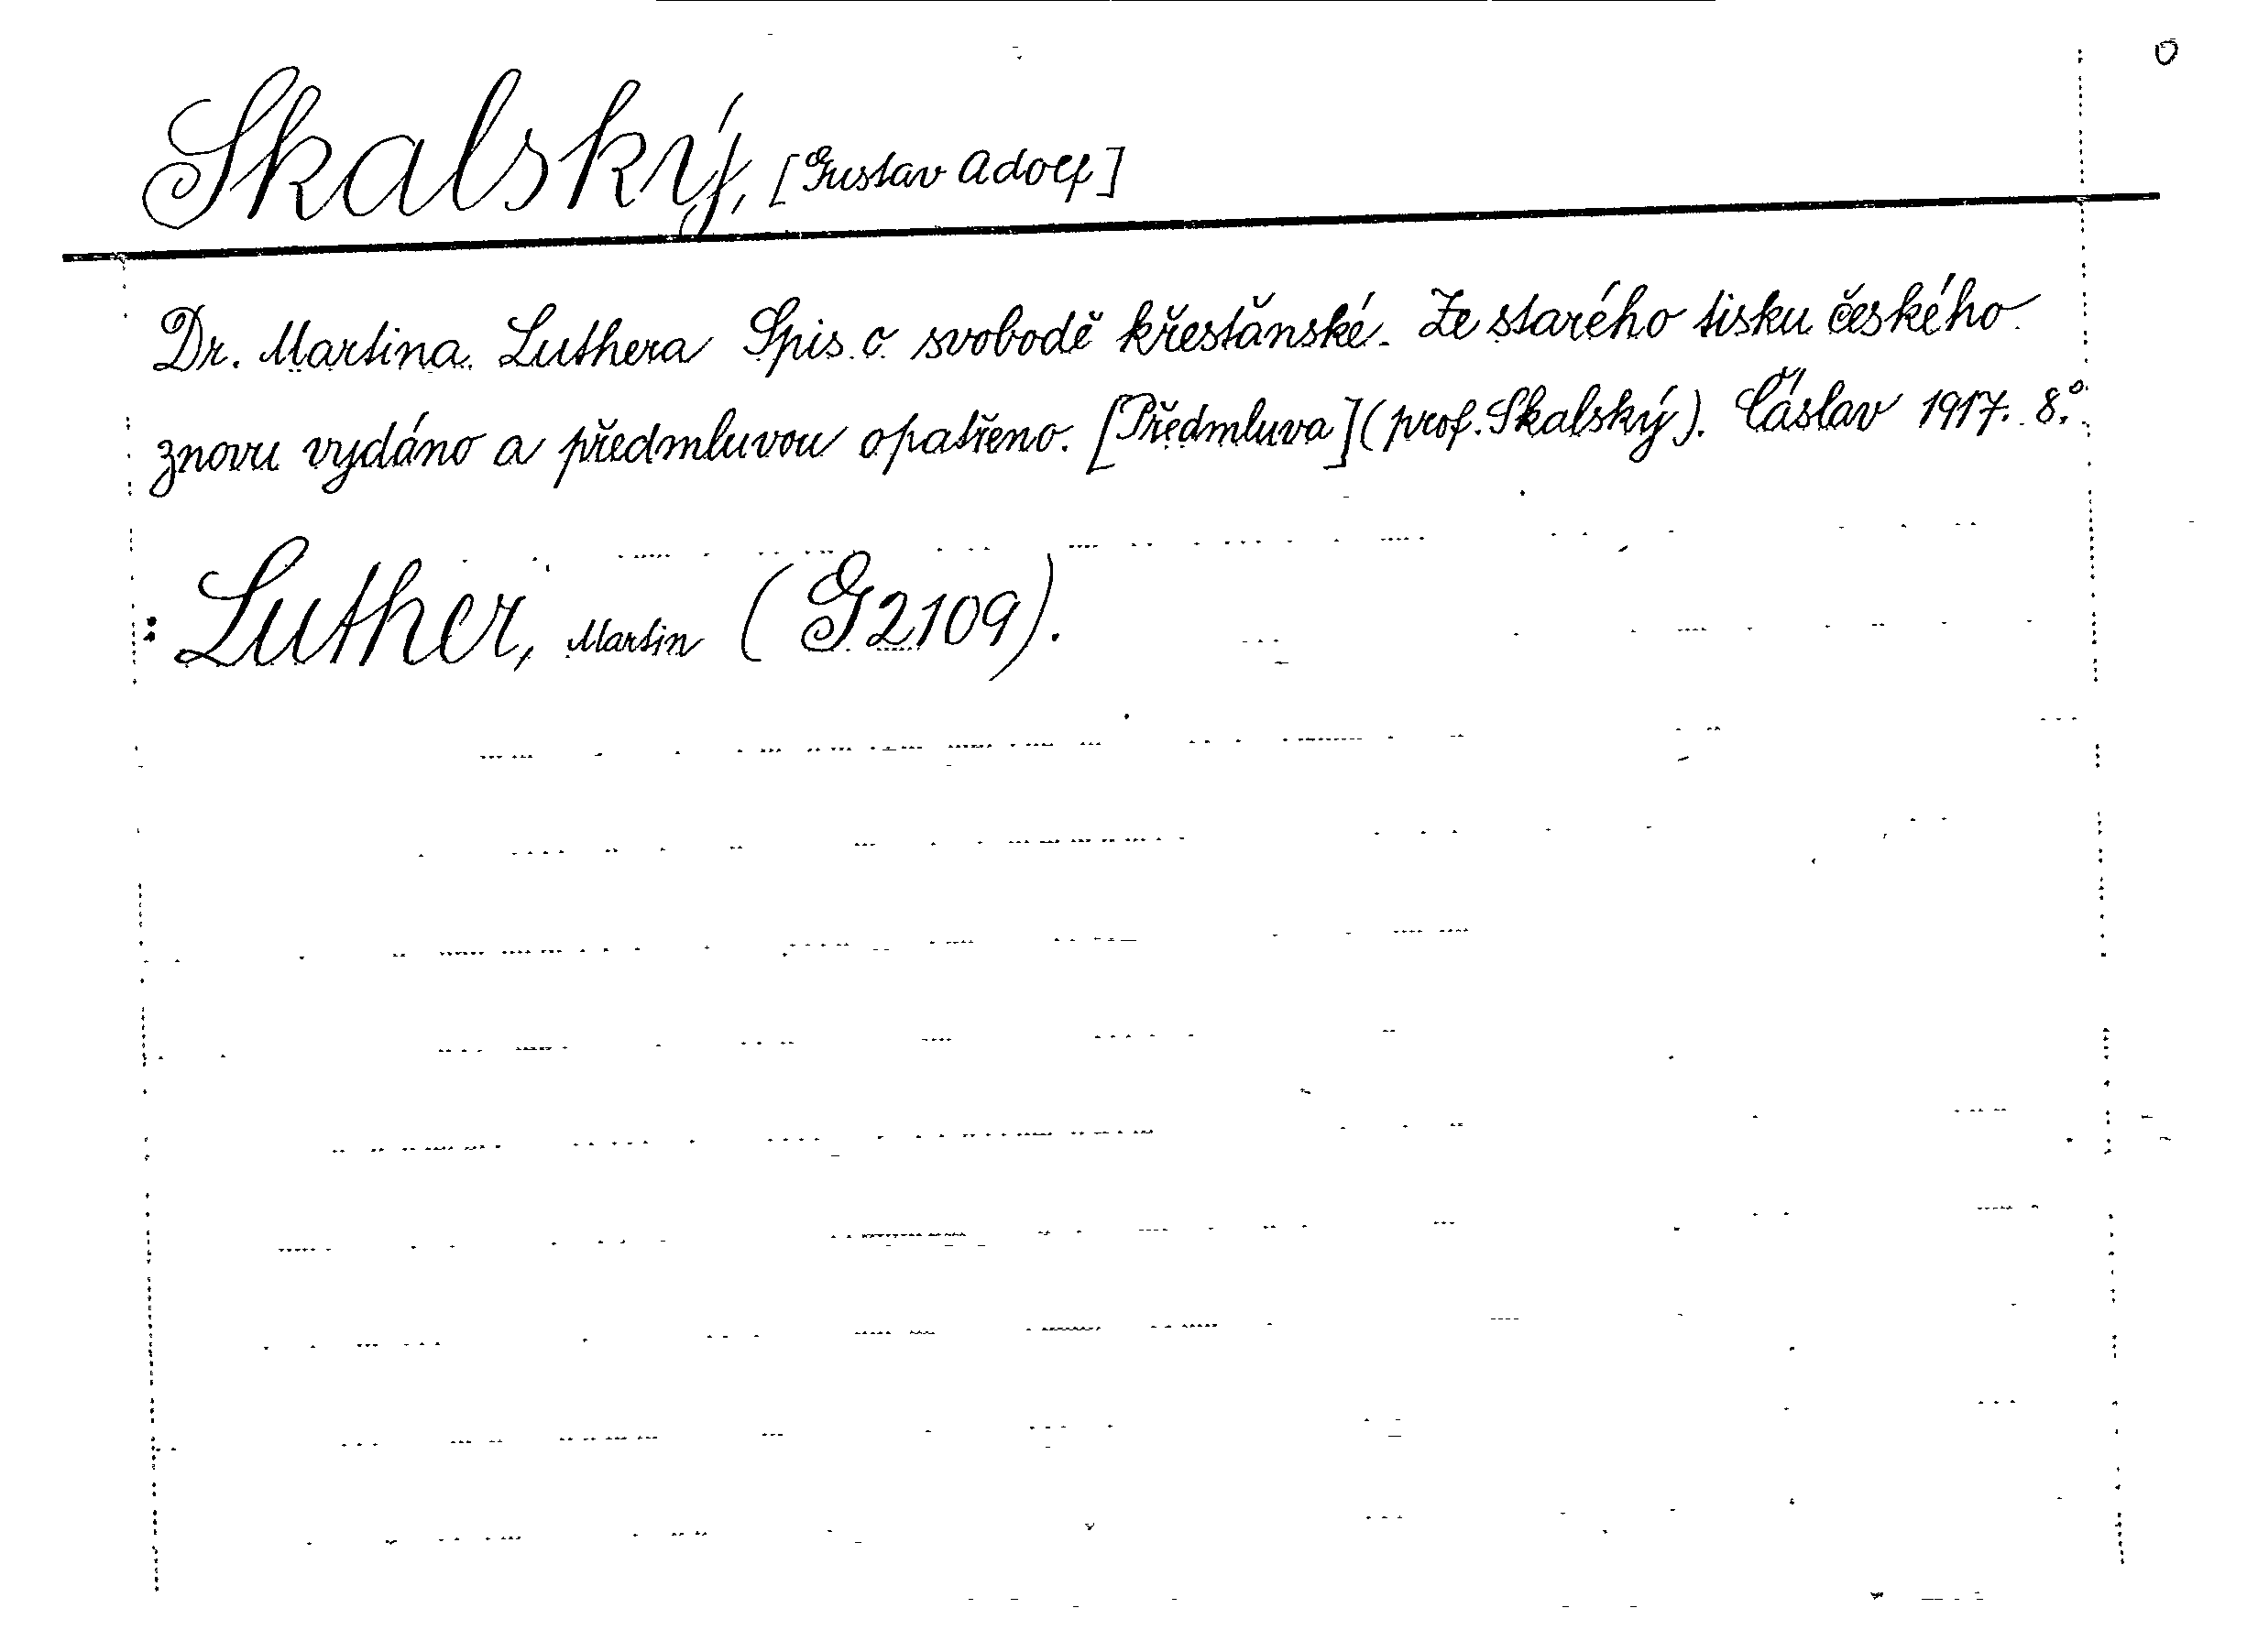 o
Skalský, [Gustav Adolf]
Dr. Martina Luthera Spis o svobodě křesťanské. Ze starého tisku českého
znovu vydáno a předmluvou opatřeno. [Předmluva] (prof. Skalský). Čáslav 1917. 8.°
: Luther, Martin (G2109).